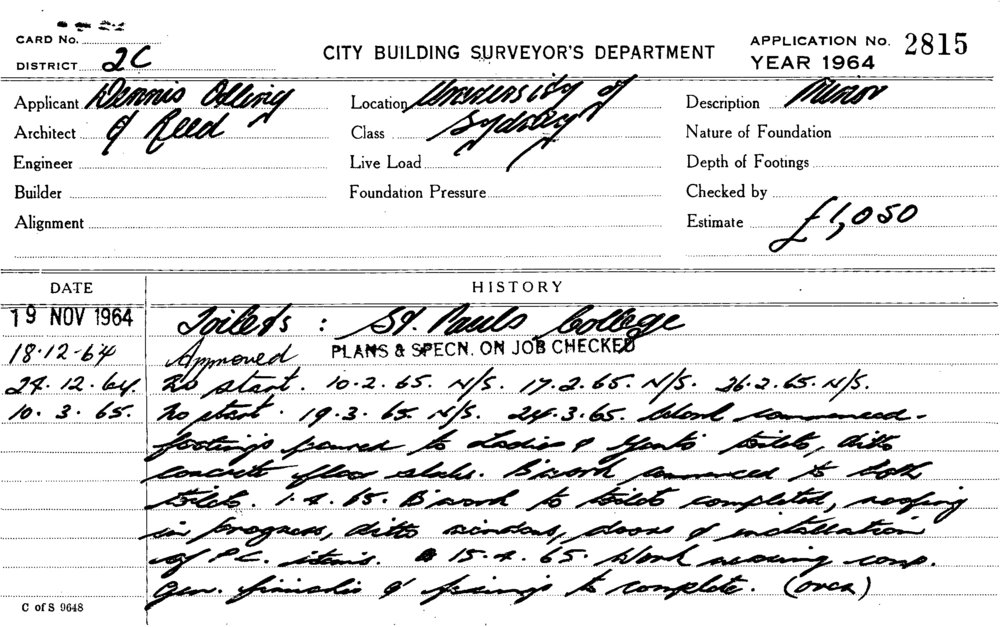 CARD No.
DISTRICT 2C
CITY BUILDING SURVEYOR'S DEPARTMENT
APPLICATION No. 2815
YEAR 1964
Applicant Dennis Olling
Architect & Reed
Engineer
Builder
Alignment
Location University of
Class Sydney
Live Load
Foundation Pressure
Description Minor
Nature of Foundation
Depth of Footings
Checked by
Estimate £1,050
DATE HISTORY
19 NOV 1964 Toilets : St. Pauls College
18.12.64 Approved PLANS & SPECN. ON JOB CHECKED
24.12.64. No start. 10.2.65. N/S. 17.2.65. N/S. 26.2.65. N/S.
10.3.65. No start. 19.3.65 N/S. 24.3.65. Work commenced.
footings poured to Ladies & Gents toilets, ditto
concrete floor slabs. B'work commenced to both
toilets. 1.4.65. B'work to toilets completed, roofing
in progress, ditto windows, doors & installation
of P.C. items. 15.4.65. Work nearing comp.
Gen. finishes & fixings to complete. (over)
C of S 9648